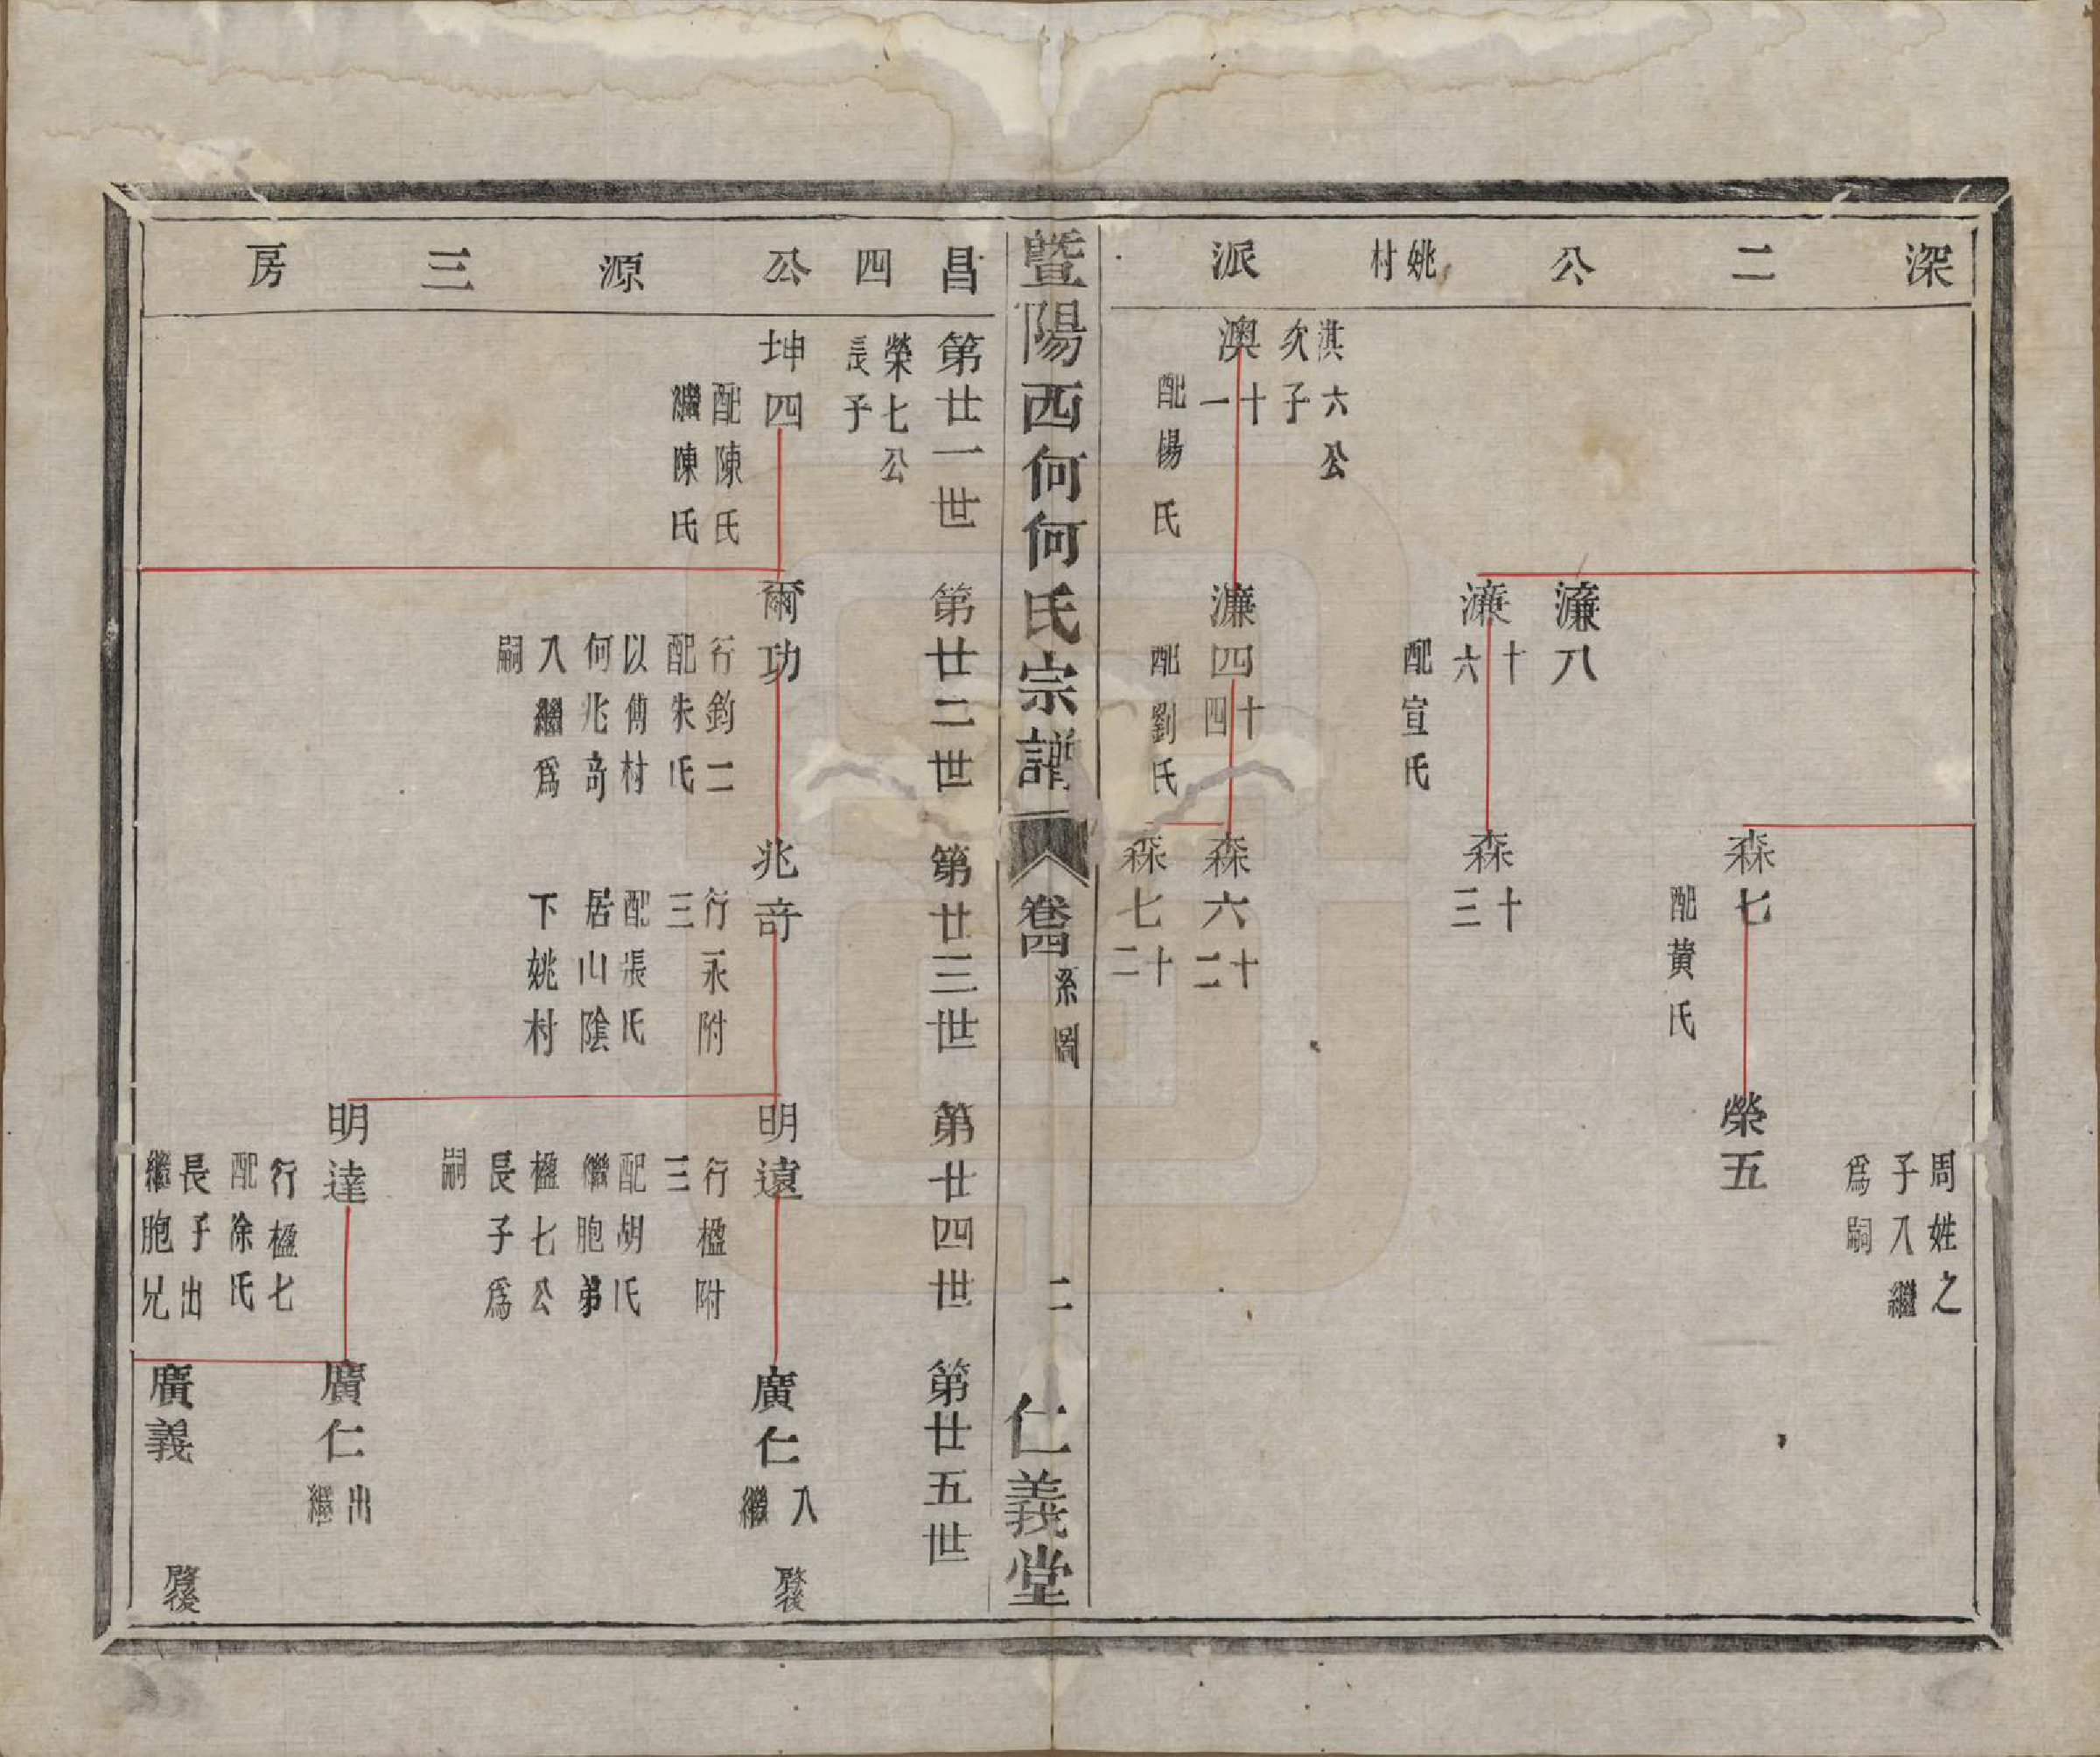 深二公姚村派
周姓之
子入繼
為嗣
森七
配黃氏
榮五
濂八
濂十六
配宣氏
森十三
淇六公
次子
澳十一
配楊氏
濂四十四
配劉氏
森六十二
森七十二
暨陽西何何氏宗譜
卷四
系圖
二
仁義堂
昌四公源三房
第廿一世
第廿二世
第廿三世
第廿四世
第廿五世
榮七公
長子
坤四
配陳氏
繼陳氏
爾功
行鈞二
配朱氏
以傅村
何兆奇
入繼為
嗣
兆奇
行永附
三
配張氏
居山陰
下姚村
明遠
行楹附
三
配胡氏
繼胞弟
楹七公
長子為
嗣
廣仁入繼
啟後
明達
行楹七
配徐氏
長子出
繼胞兄
廣仁出繼
廣義
啟後